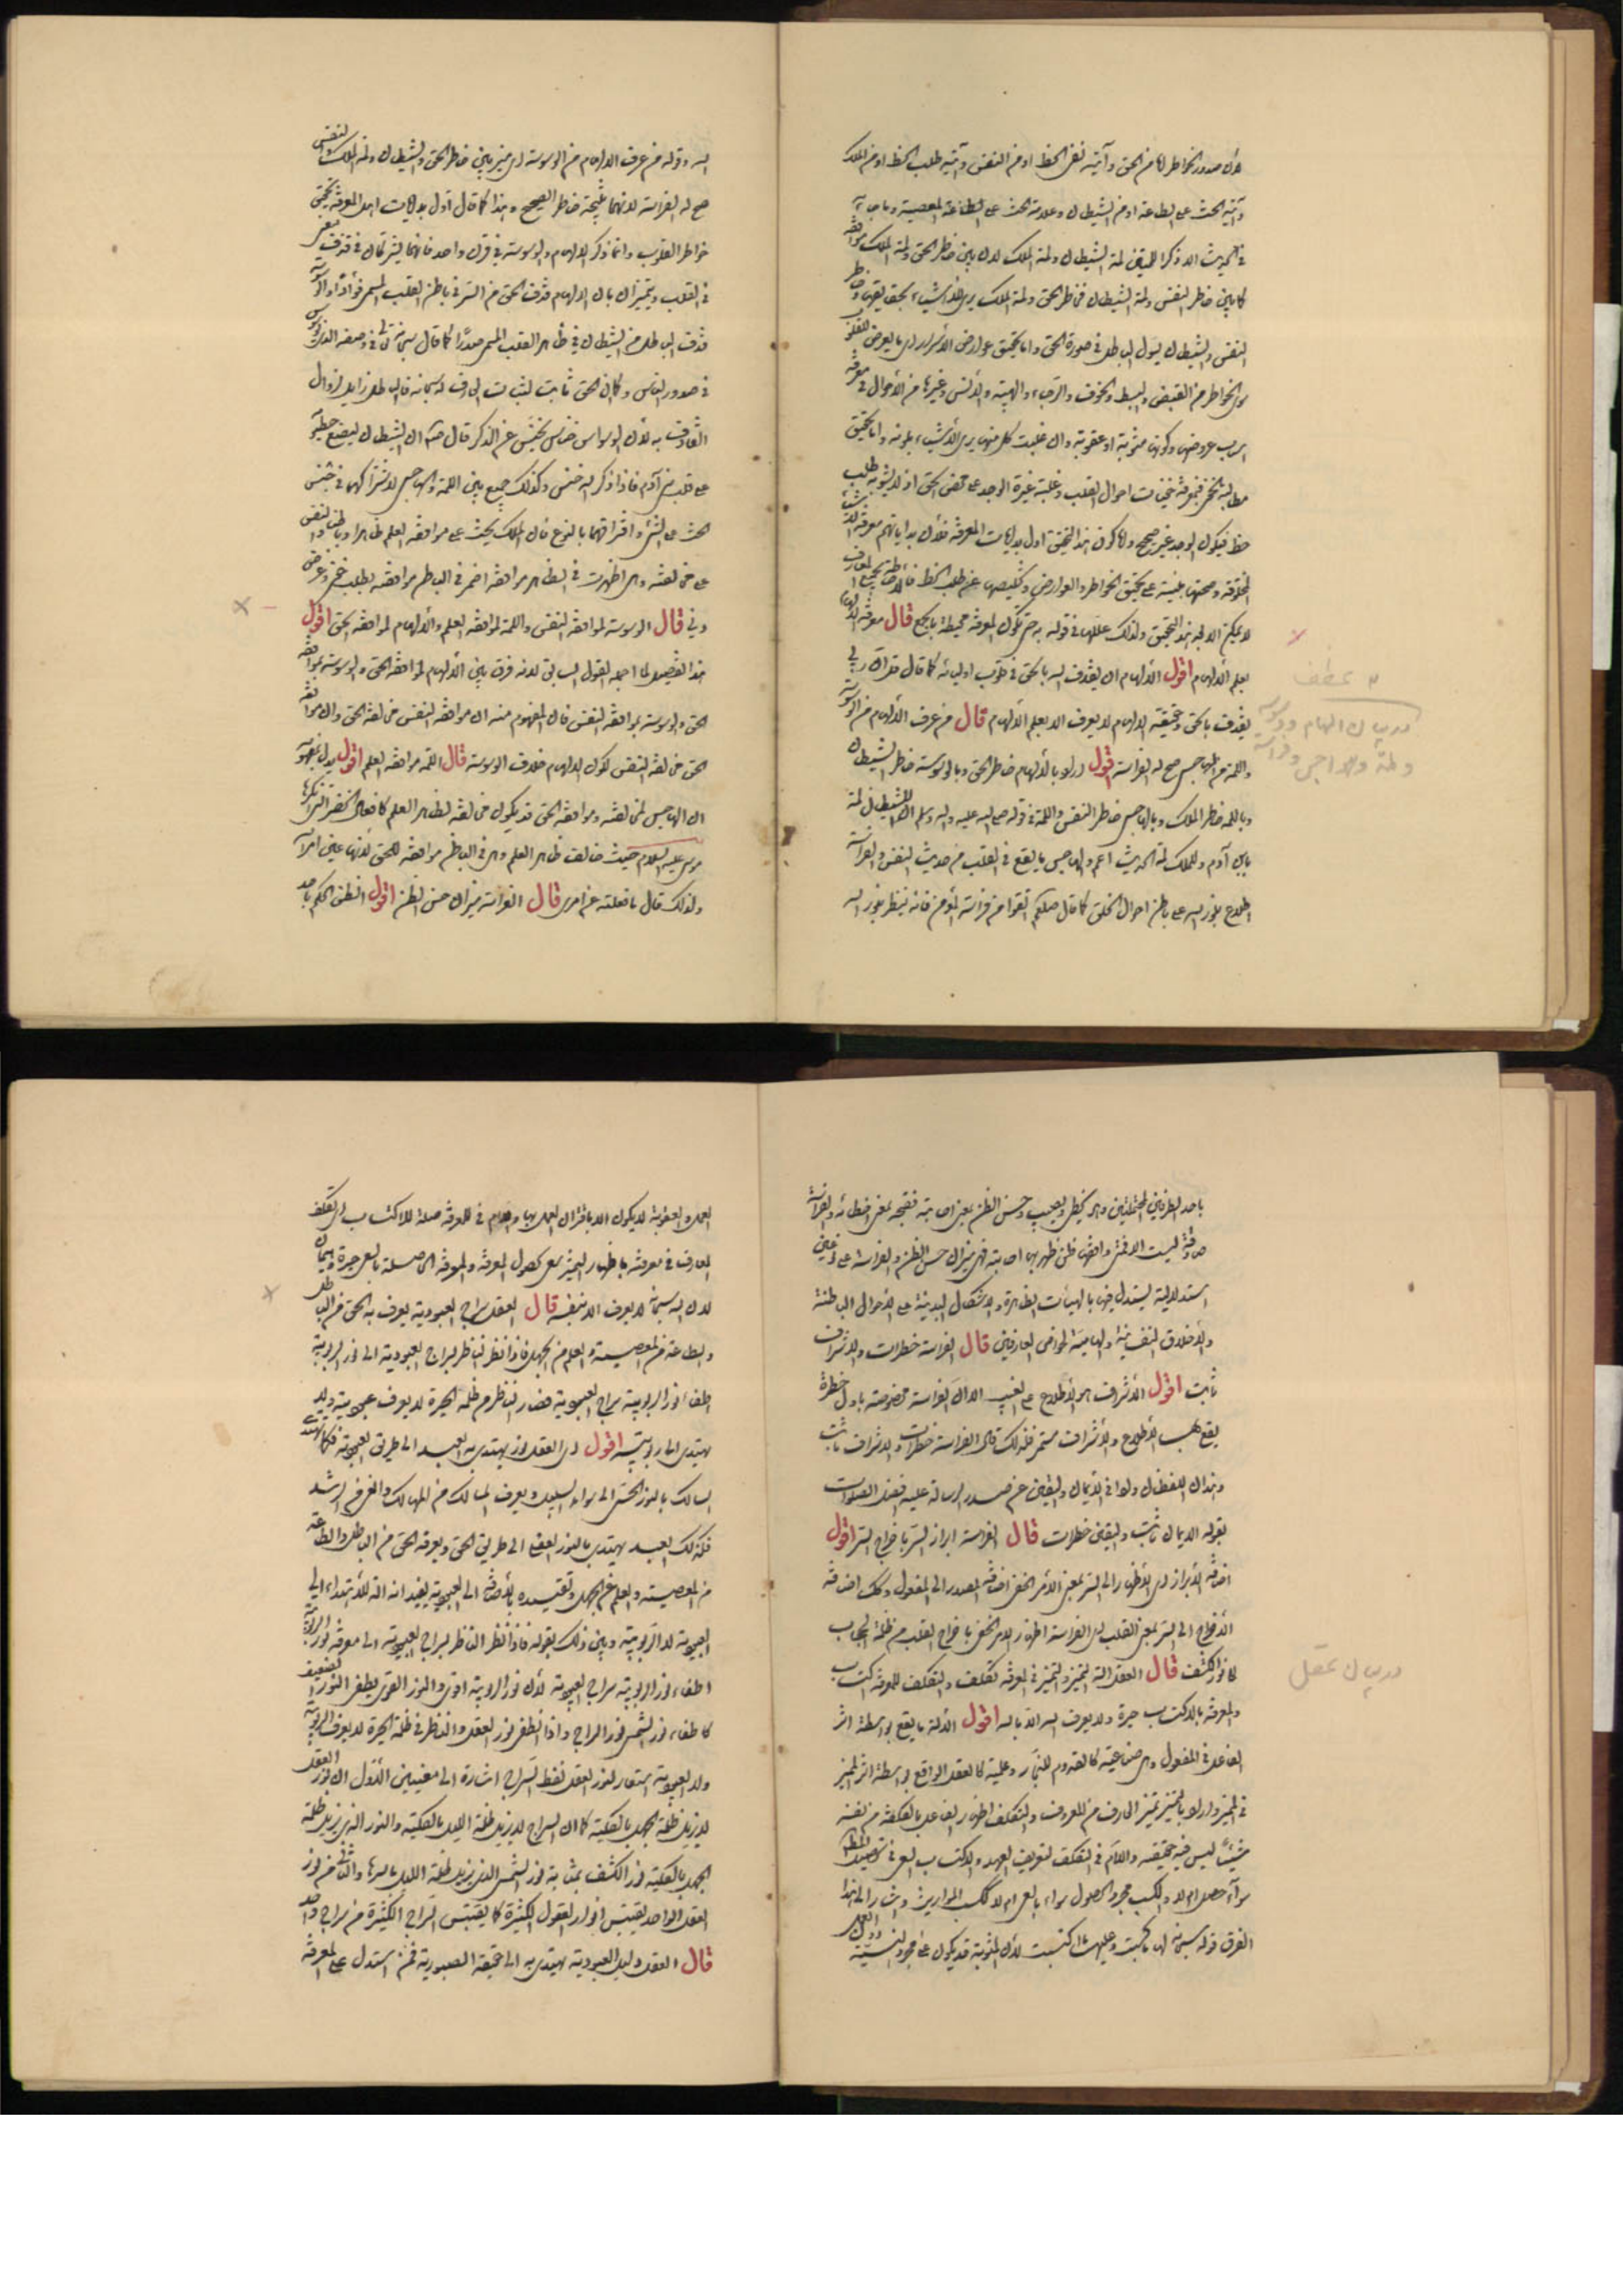 لأن صدور الخواطر اما من الحق وآيته نفى الحظ او من النفس وآيته طلب الحظ او من الملك
وآيته الحث على الطاعة او من الشيطان وعلامته الحث على المعصية وما جاء
فى الحديث الا ذكر اللمتين لمة الشيطان ولمة الملك لان بين خاطر الحق ولمة الملك موافقة
كما بين خاطر النفس ولمة الشيطان فخاطر الحق ولمة الملك يرى الاشياء بحق
النفس والشيطان يسول الباطل فى صورة الحق واما تحقيق عوارض الاسرار اى ما يعرض
من الخواطر من القبض والبسط والخوف والرجاء والهيبة والانس وغيرها من الاحوال فى معرفة
اسباب عروضها وكونها مثوبة او عقوبة وان غلبت كل منها يرى الاشياء بلونه واما تحقيق
احوال القلب وغلبة الوجد
حظ فيكون الوجد غير صحيح واما كون هذا التحقيق اول بدايات المعرفة فلأن
على تحقيق الخواطر والعوارض وتخليصها عن طلب الحظ
لا يمكن الا بهذا التحقيق ولذلك علله فى قوله به حتى تكون المعرفة محيطة قال معرفة الالهام
بعلم الالهام اقول الالهام ان يقذف الله بالحق فى قلوب اوليائه كما قال قل ان ربى
يقذف بالحق وحقيقة الالهام لا يعرف الا بعلم الالهام قال من عرف الالهام من الوسوسة
واللمة من الهاجس صح له الفراسة اقول اراد بالالهام خاطر الحق وبالوسوسة خاطر الشيطان
وباللمة خاطر الملك وبالهاجس خاطر النفس واللمة فى قوله صلى الله عليه وآله وسلم ان للشيطان لمة
بابن آدم وللملك لمة الحديث اعم والهاجس ما يقع فى القلب من حديث النفس والفراسة
اطلاع بنور الله على باطن احوال الخلق كما قال صلعم اتقوا من فراسة المؤمن فانه ينظر بنور الله
الله وقوله من عرف الالهام من الوسوسة اى ميز بين خاطر الحق والشيطان ولمة الملك والنفس
صح له الفراسة لانها نتيجة خاطر الصحيح وهذا كما قال اول بدايات اهل المعرفة تحقيق
خواطر القلوب وانما ذكر الالهام والوسوسة فى قرن واحد فانهما يشتركان فى قذف
فى القلب ويتميزان بان الالهام قذف الحق من السر فى باطن القلب المسمى فؤادا والوسوسة
قذف الباطل من الشيطان فى ظاهر القلب المسمى صدرا كما قال سبحانه تعالى فى وصفه الذى يوسوس
فى صدور الناس وكان الحق ثابت لثبات القاذف له سبحانه والباطل زايل لزوال
القاذف به لأن الوسواس خناس يخنس عن الذكر قال ان الشيطان ليضع خطمه
على قلب ابن آدم فاذا ذكر الله خنس وكذلك جمع بين اللمة والهاجس لاشتراكهما فى جنس
الحث على الشئ وافتراقهما بالنوع فان الملك يحث على موافقة العلم ظاهرا وباطنا والنفس
على مخالفته وان اظهرت فى الظاهر موافقة اضمر فى الباطن موافقة بطلب حظ وغرض
قال الوسوسة لموافقة النفس واللمة لموافقة العلم والالهام لموافقة الحق اقول
هذا تفصيل لما اجمله القول السابق لانه فرق بين الالهام لموافقة الحق والوسوسة بموافقة
الحق والوسوسة بموافقة النفس فان المفهوم منه ان موافقة النفس مخالفة الحق وان موافقة
الحق مخالفة النفس لكون الالهام خلاف الوسوسة قال اللمة موافقة العلم اقول يدل
ان الهاجس لمخالفته وموافقة الحق قد يكون مخالفة لظاهر العلم كافعال الخضر التى انكرها
موسى عليه السلام حيث خالفت ظاهر العلم وهى فى الباطن موافقة للحق لانها عين امره
ولذلك قال ما فعلته عن امرى قال الفراسة ميزان حسن الظن اقول الظن الحكم باحد
باحد الطرفين المحتملين وهو يخطى ويصيب وحسن الظن
صادقة ليست الا فمتى وافقها ظن ظهر بها اصابته فهى ميزان حسن الظن والفراسة على نوعين
استدلالية يستدل فيها بالهيئات الظاهرة والاشكال البدنية على الاحوال الباطنة
والاخلاق النفسية والهامية لخواص العارفين قال الفراسة خطرات والاشراف
ثابت اقول الاشراف هو الاطلاع على الغيب الا ان الفراسة مخصوصة باول خطرة
يقع الاطلاع والاشراف مستمر فلذلك قال الفراسة خطرات والاشراف ثابت
بقوله الايمان ثابت واليقين خطرات قال الفراسة ابراز السر باخراج السر اقول
اضافة الابراز اى الاظهار الى السر بمعنى الامر الخفى اضافة المصدر الى المفعول وكذلك اضافة
الاخراج الى السر بمعنى القلب اى الفراسة اظهار الامر الخفى باخراج القلب من ظلمة الحجاب
الى نور الكشف قال العقل آلة التميز والتميز فى المعرفة تكلف والتكلف للمعرفة اكتساب
والمعرفة بالاكتساب حيرة ولا يعرف الله الا بالله اقول الآلة ما يقع بواسطة اثر
الفاعل فى المفعول وهى صناعية كالقدوم للنجار وعلمية كالعقل الواقع بواسطة اثر المميز
فى المميز واراد بالتميز تميز العارف من المعروف والتكلف اظهار الفاعل بالكلفة من نفسه
شيئا ليس فيه حقيقة واللام فى التكلف لتعريف العهد والاكتساب السعى فى تحصيل
سواء حصل ام لا والكسب مجرد الحصول سواء بالسعى ام لا ككسب المواريث واشار الى هذا
الفرق قوله سبحانه لها ما كسبت وعليها ما اكتسبت لان المثوبة قد يكون على مجرد النية
العمل والعقوبة لا يكون الا باقتران العمل بها واللام فى للمعرفة صلة للاكتساب اى تكلف
العارف فى معرفته باظهار التميز سعى لحصول المعرفة والمعرفة الحاصلة بالسعى حيرة
لان الله سبحانه لا يعرف الا بنفسه قال العقل سراج العبودية يعرف به الحق من الباطل
والطاعة من المعصية والعلم من الجهل فاذا نظر الناظر بسراج العبودية الى نور الربوبية
اطفاء نور الربوبية سراج العبودية فصار الناظر فى ظلمة الحيرة لا يعرف عبودية ولا
يهتدى الى ربوبيته اقول اى العقل نور يهتدى به العبد الى طريق العبودية فكما يهتدى
السالك بالنور الحسى الى سواء السبيل ويعرف المسالك من المهالك والغى من الرشد
فكذلك العبد يهتدى بالنور العقلى الى طريق الحق ومعرفة الحق من الباطل والطاعة
من المعصية والعلم من الجهل وتقييده بالاضافة الى العبودية يفيد انه آلة للاهتداء الى
العبودية لا الربوبية وبين ذلك بقوله فاذا نظر الناظر بسراج العبودية الى معرفة نور الربوبية
اطفاء نور الربوبية سراج العبودية لأن نور الربوبية اقوى والنور القوى يطفى النور الضعيف
كاطفاء نور الشمس نور السراج واذا انطفى نور العقل والناظر فى ظلمة الحيرة لا يعرف الربوبية
ولا العبودية استعار لنور العقل لفظ السراج اشارة الى معنيين الاول ان نور العقل
لا يزيل ظلمة الجهل بالكلية كما ان السراج لا يزيل ظلمة الليل بالكلية والنور الذى يزيل ظلمة
الجهل بالكلية نور الكشف بمثابة نور الشمس الذى يزيل ظلمة الليل باسرها والثانى من نور
العقل الواحد يقتبس انوار العقول الكثيرة كما يقتبس السراج الكثيرة من سراج واحد
قال العقل دليل العبودية يهتدى به الى حقيقة العبودية فمن استدل على المعرفة